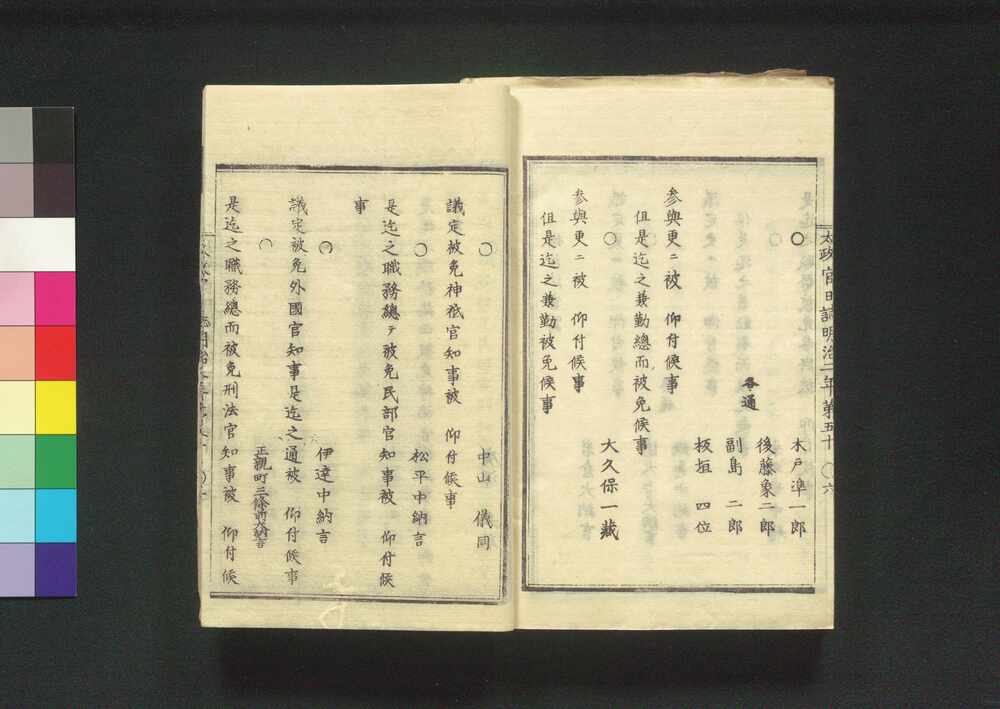 太政官日誌明治二年第五十　〇六
〇
木戸準一郎
後藤象二郎
各通
副島二郎
板垣四位
参與更ニ被　仰付候事
但是迄之兼勤總而被免候事
〇
大久保一蔵
参與更ニ被　仰付候事
但是迄之兼勤被免候事
〇
中山儀同
議定被免神祇官知事被　仰付候事
〇
松平中納言
是迄之職務總テ被免民部官知事被　仰付候
事
〇
伊達中納言
議定被免外國官知事是迄之通被　仰付候事
〇
正親町三條前大納言
是迄之職務總而被免刑法官知事被　仰付候